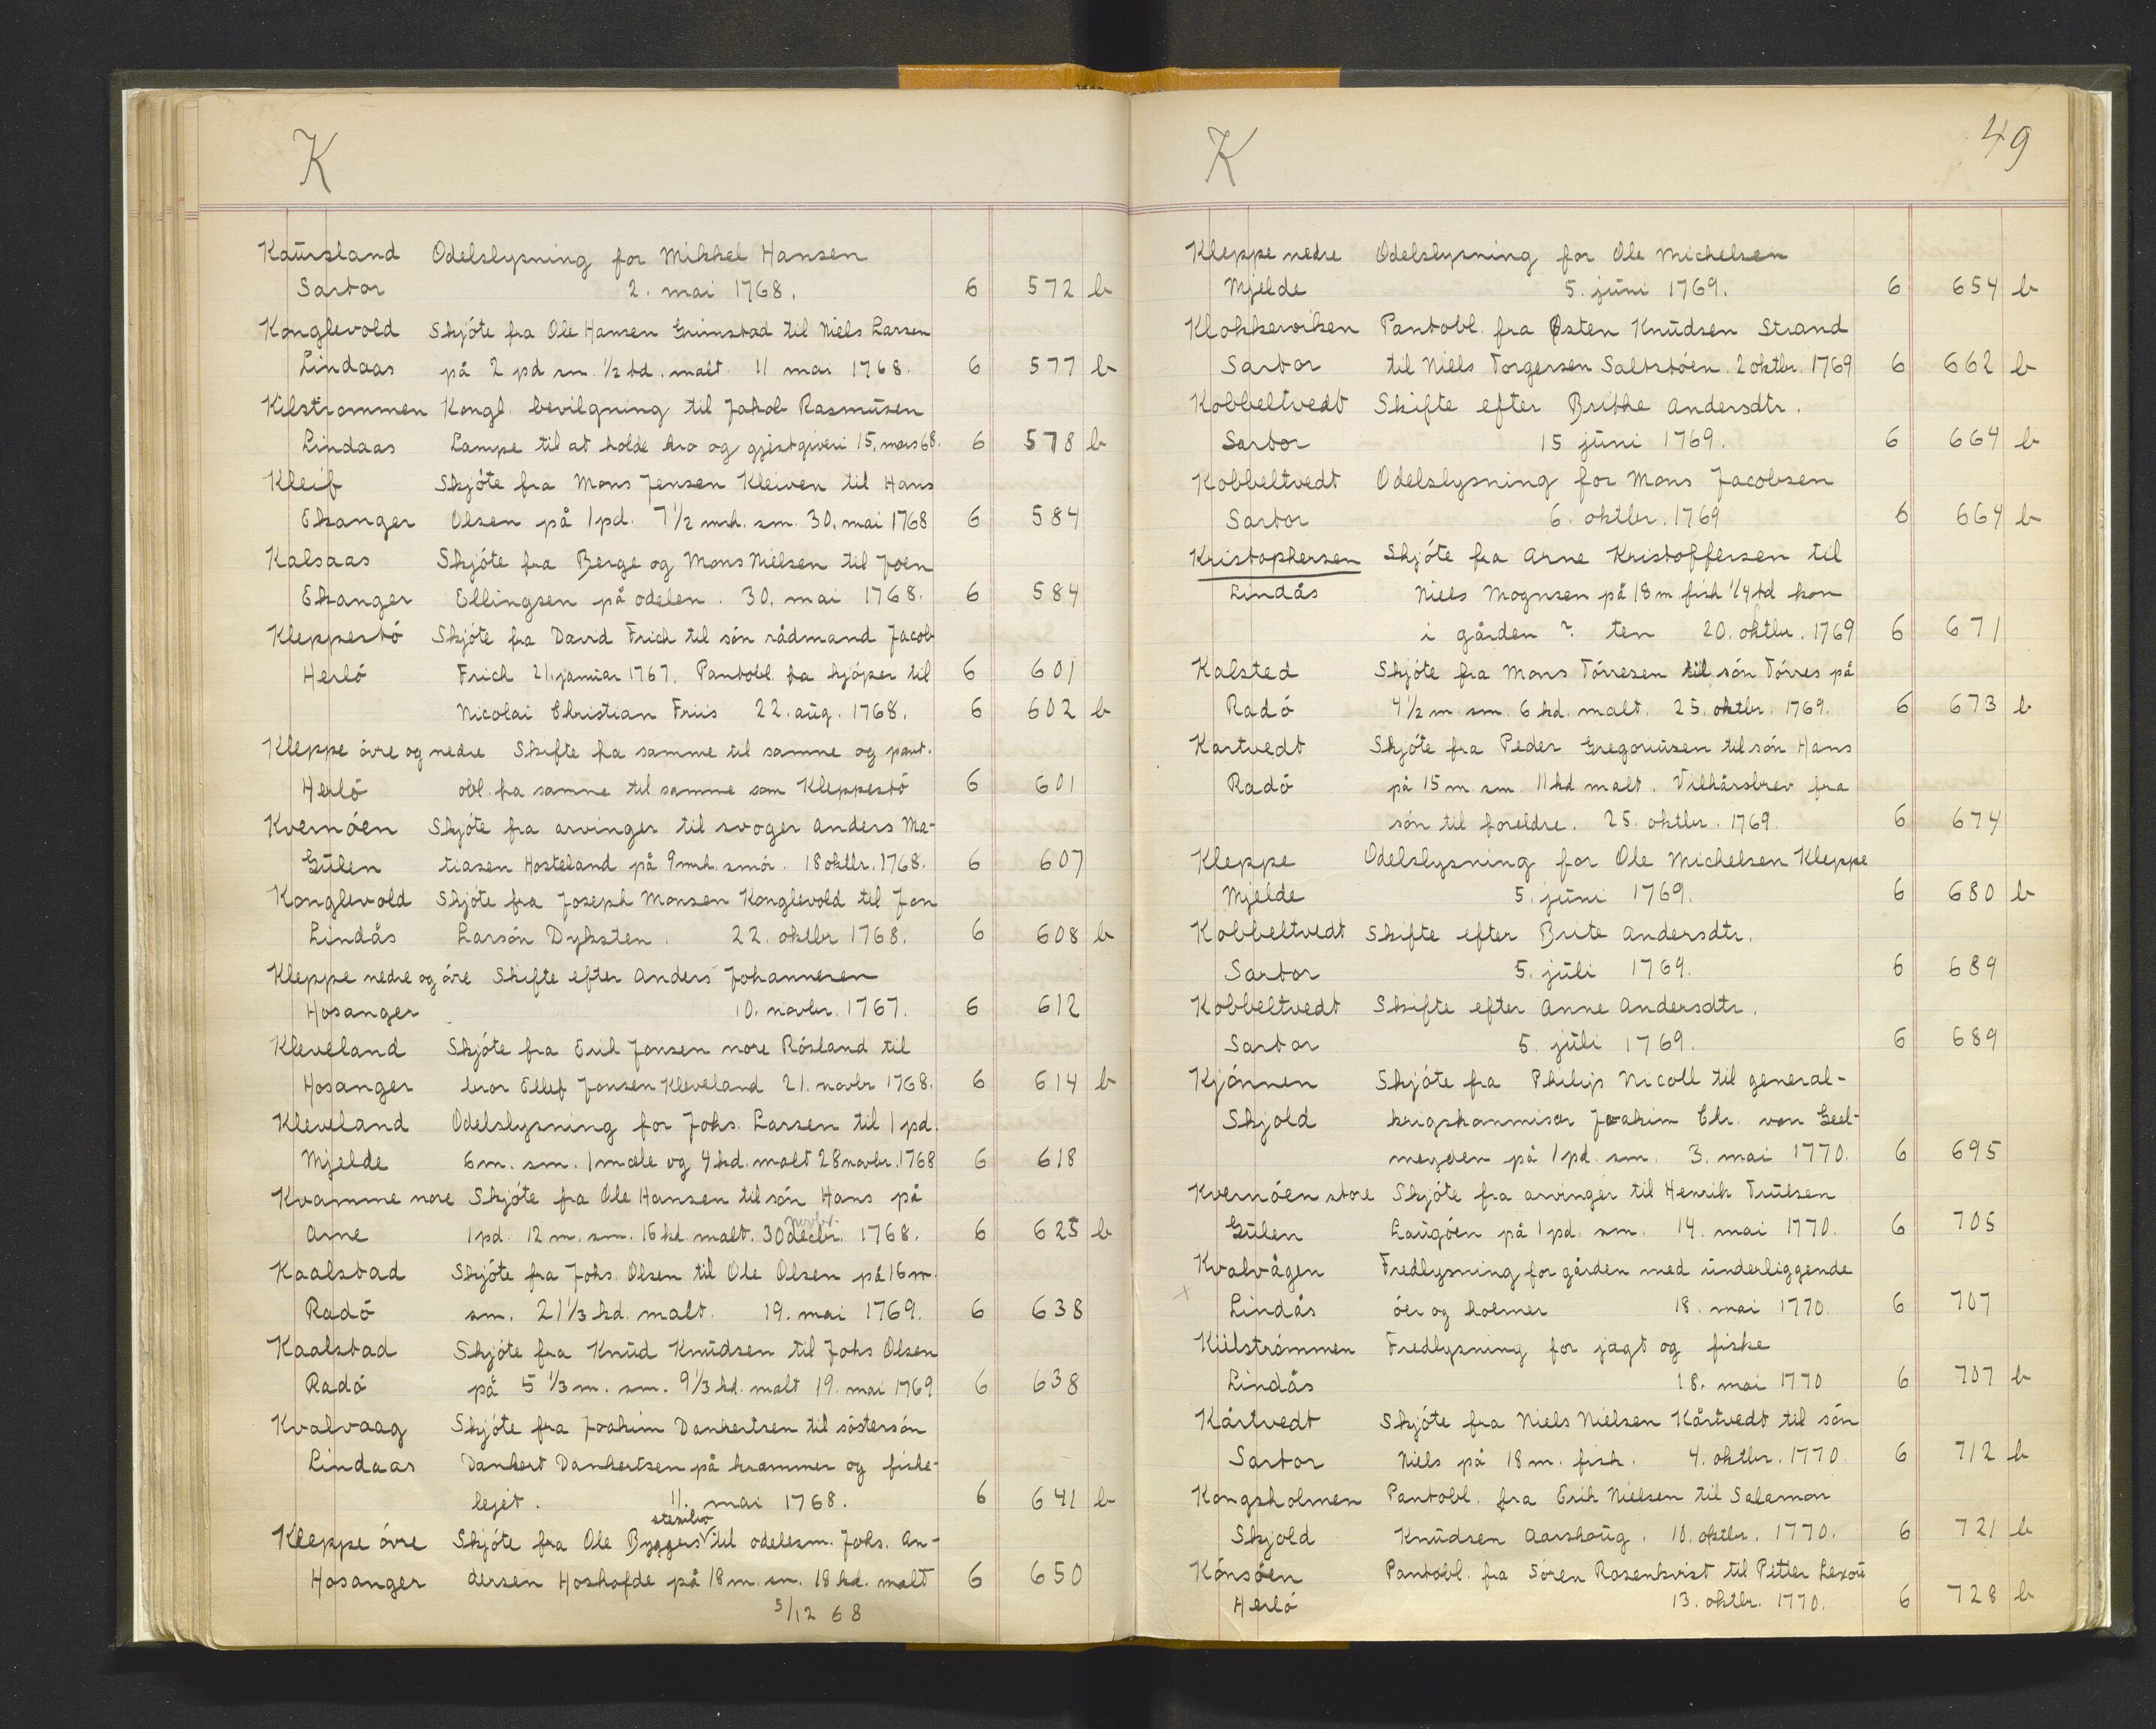 K
Kaursland Odelslysning for Mikkel Hansen
Sartor 2. mai 1768. 6 572 b
Konglevold Skjóte fra Ole Hansen Grimstad til Niels Larsen
Lindaas på 2 pd sm. 1/2 td. malt. 11 mai 1768. 6 577 b
Kilstrommen Kongl. bevilgning til Jakob Rasmusen
Lindaas Lampe til at holde kro og gjestgiveri 15. mars 68. 6 578 b
Kleif Skjóte fra Mons Jensen Kleiven til Hans
Ekanger Olsen på 1 pd. 7 1/2 mrk. sm. 30. mai 1768 6 584
Kalsaas Skjóte fra Berge og Mons Nielsen til Joen
Ekanger Ellingsen på odelen. 30. mai 1768. 6 584
Kleppestó Skjóte fra David Frich til són rådmand Jacob
Herló Frich 21. januar 1767. Pantobl. fra kjóper til 6 601
Nicolai Christian Friis 22. aug. 1768. 6 602 b
Kleppe óvre og nedre Skifte fra samme til samme og pant.
Herló obl. fra samme til samme som Kleppestó 6 601
Kvernóen Skjóte fra arvinger til svoger Anders Ma-
Gulen tiasen Hosteland på 9 mrk. smór. 18 oktbr. 1768. 6 607
Konglevold Skjóte fra Joseph Monsen Konglevold til Jon
Lindås Larsón Dyksten. 22. oktbr 1768. 6 608 b
Kleppe nedre og óvre Skifte efter Anders Johannesen
Hosanger 10. novbr. 1767. 6 612
Kleveland Skjóte fra Erik Jonsen nore Rósland til
Hosanger bror Ellef Jonsen Kleveland 21. novbr 1768. 6 614 b
Kleveland Odelslysning for Johs. Larsen til 1 pd.
Mjelde 6 m. sm. 1 mæle og 4 hd. malt 28 novbr. 1768 6 618
Kvamme nore Skjóte fra Ole Hansen til són Hans på
novbr.
Arne 1 pd. 12 m. sm. 16 kd. malt. 30 decbr. 1768. 6 625 b
Kaalstad Skjóte fra Johs. Olsen til Ole Olsen på 16 m.
Radó sm. 21 1/3 kd. malt. 19. mai 1769. 6 638
Kaalstad Skjóte fra Knud Knudsen til Johs Olsen
Radó på 5 1/3 m. sm. 9 1/3 kd. malt 19. mai 1769 6 638
Kvalvaag Skjóte fra Joakim Dankertsen til sóstersón
Lindaas Dankert Dankertsen på kræmmer og fiske-
lejet. 11. mai 1768. 6 641 b
Kleppe óvre Skjóte fra Ole Byggers til odelesm. Johs. An-
Hosanger dersen Hoshofde på 18 m. sm. 18 kd. malt 6 650
5/12 68
K 49
Kleppe nedre Odelslysning for Ole Michelsen
Mjelde 5. juni 1769. 6 654 b
Klokkerviken Pantobl. fra Østen Knudsen Strand
Sartor til Niels Torgersen Saltstóen. 2 oktbr. 1769 6 662 b
Kobbeltvedt Skifte efter Brithe Andersdtr.
Sartor 15 juni 1769. 6 664 b
Kobbeltvedt Odelslysning for Mons Jacobsen
Sartor 6. oktbr. 1769 6 664 b
Kristophersen Skjóte fra Arne Kristoffersen til
Lindås Niels Mognsen på 18 m. fisk 1/4 td korn
i gården ? ten 20. oktbr. 1769 6 671
Kalsted Skjóte fra Mons Tórresen til són Tórres på
Radó 4 1/2 m. sm. 6 kd. malt. 25. oktbr. 1769. 6 673 b
Kartvedt Skjóte fra Peder Gregoriusen til són Hans
Radó på 15 m. sm. 11 kd malt. Vilkårsbrev fra
són til foreldre. 25. oktbr. 1769. 6 674
Kleppe Odelslysning for Ole Michelsen Kleppe
Mjelde 5. juni 1769. 6 680 b
Kobbeltvedt Skifte efter Brite Andersdtr.
Sartor 5. juli 1769. 6 689
Kobbeltvedt Skifte efter Anne Andersdtr.
Sartor 5. juli 1769. 6 689
Kjónnen Skjóte fra Philip Nicoll til general-
Skjold krigskommisær Joakim Chr. von Geel-
meyden på 1 pd. sm. 3. mai 1770. 6 695
Kvernóen store Skjóte fra arvinger til Henrik Trulsen
Gulen Laugóen på 1 pd. sm. 14. mai 1770. 6 705
Kvalvågen Fredlysning for gården med underliggende
x Lindås óer og holmer 18. mai 1770. 6 707
Kiilstrómmen Fredlysning for jagt og fiske
Lindås 18. mai 1770 6 707 b
Kårtvedt Skjóte fra Niels Nielsen Kårtvedt til són
Sartor Niels på 18 m. fisk. 4. oktbr. 1770 6 712 b
Kongsholmen Pantobl. fra Erik Nielsen til Salamon
Skjold Knudsen Aarshoug. 10. oktbr. 1770. 6 721 b
Kónsóen Pantobl. fra Sóren Rosenkvist til Petter
Herló 13. oktbr. 1770. 6 728 b